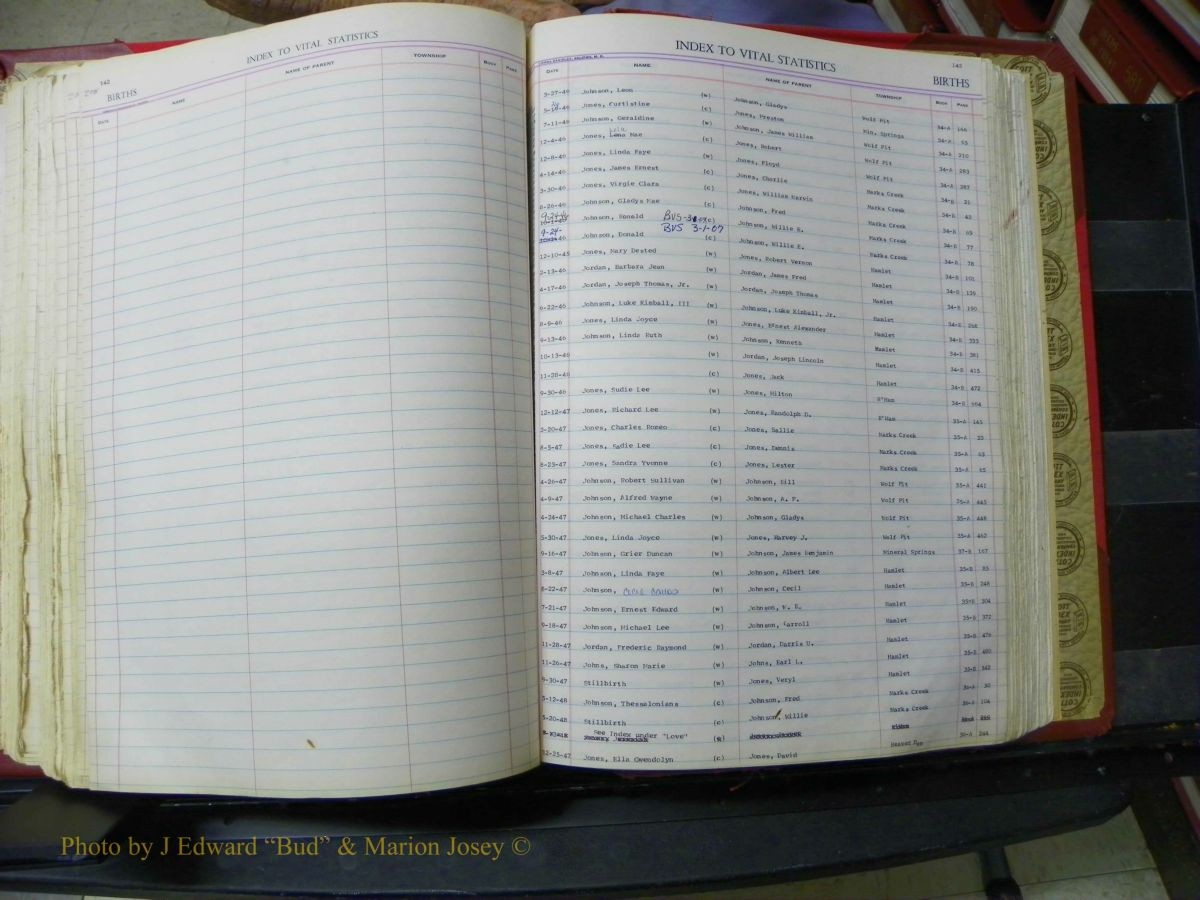 142
INDEX TO VITAL STATISTICS
BIRTHS
DATE NAME NAME OF PARENT TOWNSHIP BOOK PAGE
INDEX TO VITAL STATISTICS 143
BIRTHS
DATE NAME NAME OF PARENT TOWNSHIP BOOK PAGE
3-27-46 Johnson, Leon (w) Johnson, Gladys Wolf Pit 34-A 166
Jones, Curtistine (c) Jones, Preston Min. Springs 34-A
7-11-46 Johnson, Geraldine (w) Johnson, James William Wolf Pit 34-A 210
12-4-46 Jones, Mae (c) Jones, Robert Wolf Pit 34-A 283
12-8-46 Jones, Linda Faye (w) Jones, Floyd Wolf Pit 34-A 287
4-14-46 Jones, James Ernest (c) Jones, Charlie Marks Creek 34-B 21
3-30-46 Jones, Virgie Clara (c) Jones, William Marvin Marks Creek 34-B
8-26-46 Johnson, Gladys Mae (c) Johnson, Fred Marks Creek 34-B 65
9-24-46 Johnson, Ronald BVS (c) Johnson, Willie E. Marks Creek 34-B 77
9-24-46 Johnson, Donald BVS 3-1-07 (c) Johnson, Willie E. Marks Creek 34-B 78
12-10-45 Jones, Mary Dested (w) Jones, Robert Vernon Hamlet 34-B 101
2-13-46 Jordan, Barbara Jean (w) Jordan, James Fred Hamlet 34-B 139
4-17-46 Jordan, Joseph Thomas, Jr. (w) Jordan, Joseph Thomas Hamlet 34-B 190
6-22-46 Johnson, Luke Kimball, III (w) Johnson, Luke Kimball, Jr. Hamlet 34-B 268
8-9-46 Jones, Linda Joyce (w) Jones, Ernest Alexander Hamlet 34-B 333
9-13-46 Johnson, Linda Ruth (w) Johnson, Kenneth Hamlet 34-B 381
10-13-46 (w) Jordan, Joseph Lincoln Hamlet 34-B 415
11-28-46 (c) Jones, Jack Hamlet 34-B 472
9-30-46 Jones, Sudie Lee (w) Jones, Hilton R'Ham 34-B
12-12-47 Jones, Richard Lee (w) Jones, Randolph D. R'Ham 35-A 145
3-20-47 Jones, Charles Romeo (c) Jones, Sallie Marks Creek 35-A 25
8-5-47 Jones, Sadie Lee (c) Jones, Dennis Marks Creek 35-A 63
8-23-47 Jones, Sandra Yvonne (c) Jones, Lester Marks Creek 35-A 65
4-26-47 Johnson, Robert Sullivan (w) Johnson, Bill Wolf Pit 35-A 441
4-9-47 Johnson, Alfred Wayne (w) Johnson, A. P. Wolf Pit 35-A 445
4-24-47 Johnson, Michael Charles (w) Johnson, Gladys Wolf Pit 35-A 448
5-30-47 Jones, Linda Joyce (w) Jones, Harvey J. Wolf Pit 35-A 462
9-16-47 Johnson, Grier Duncan (w) Johnson, James Benjamin Mineral Springs 37-B 167
3-8-47 Johnson, Linda Faye (w) Johnson, Albert Lee Hamlet 35-B 85
8-22-47 Johnson, (w) Johnson, Cecil Hamlet 35-B 248
7-21-47 Johnson, Ernest Edward (w) Johnson, K. E. Hamlet 35-B 304
9-18-47 Johnson, Michael Lee (w) Johnson, Carroll Hamlet 35-B 372
11-28-47 Jordan, Frederic Raymond (w) Jordan, Darris U. Hamlet 35-B 476
11-26-47 Johns, Sharon Marie (w) Johns, Earl L. Hamlet 35-B 480
9-30-47 Stillbirth (w) Jones, Veryl Hamlet 35-B 542
5-12-48 Johnson, Thessalonians (c) Johnson, Fred Marks Creek 36-A 30
5-20-48 Stillbirth (c) Johnson, Willie Marks Creek 36-A 104
See Index under "Love"
12-25-47 Jones, Ella Gwendolyn (c) Jones, David Beaver Dam 36-A 244
Photo by J Edward “Bud” & Marion Josey ©